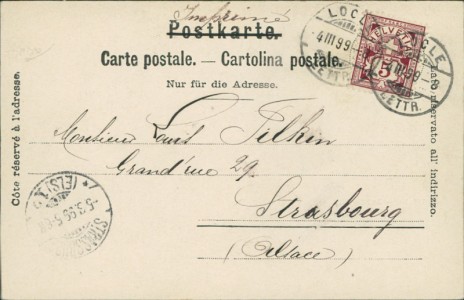 Imprimé
Postkarte.
Carte postale. — Cartolina postale.
Nur für die Adresse.
Côte réservé à l'adresse.
Lato riservato all' indirizzo.
LOCLE
4 III 99
LETTR.
HELVETIA
5
LOCLE
4 III 99-8
LETTR.
Monsieur Louis Filkin
Grand'rue 29.
Strasbourg
(Alsace)
(ELS)
5.3.99.